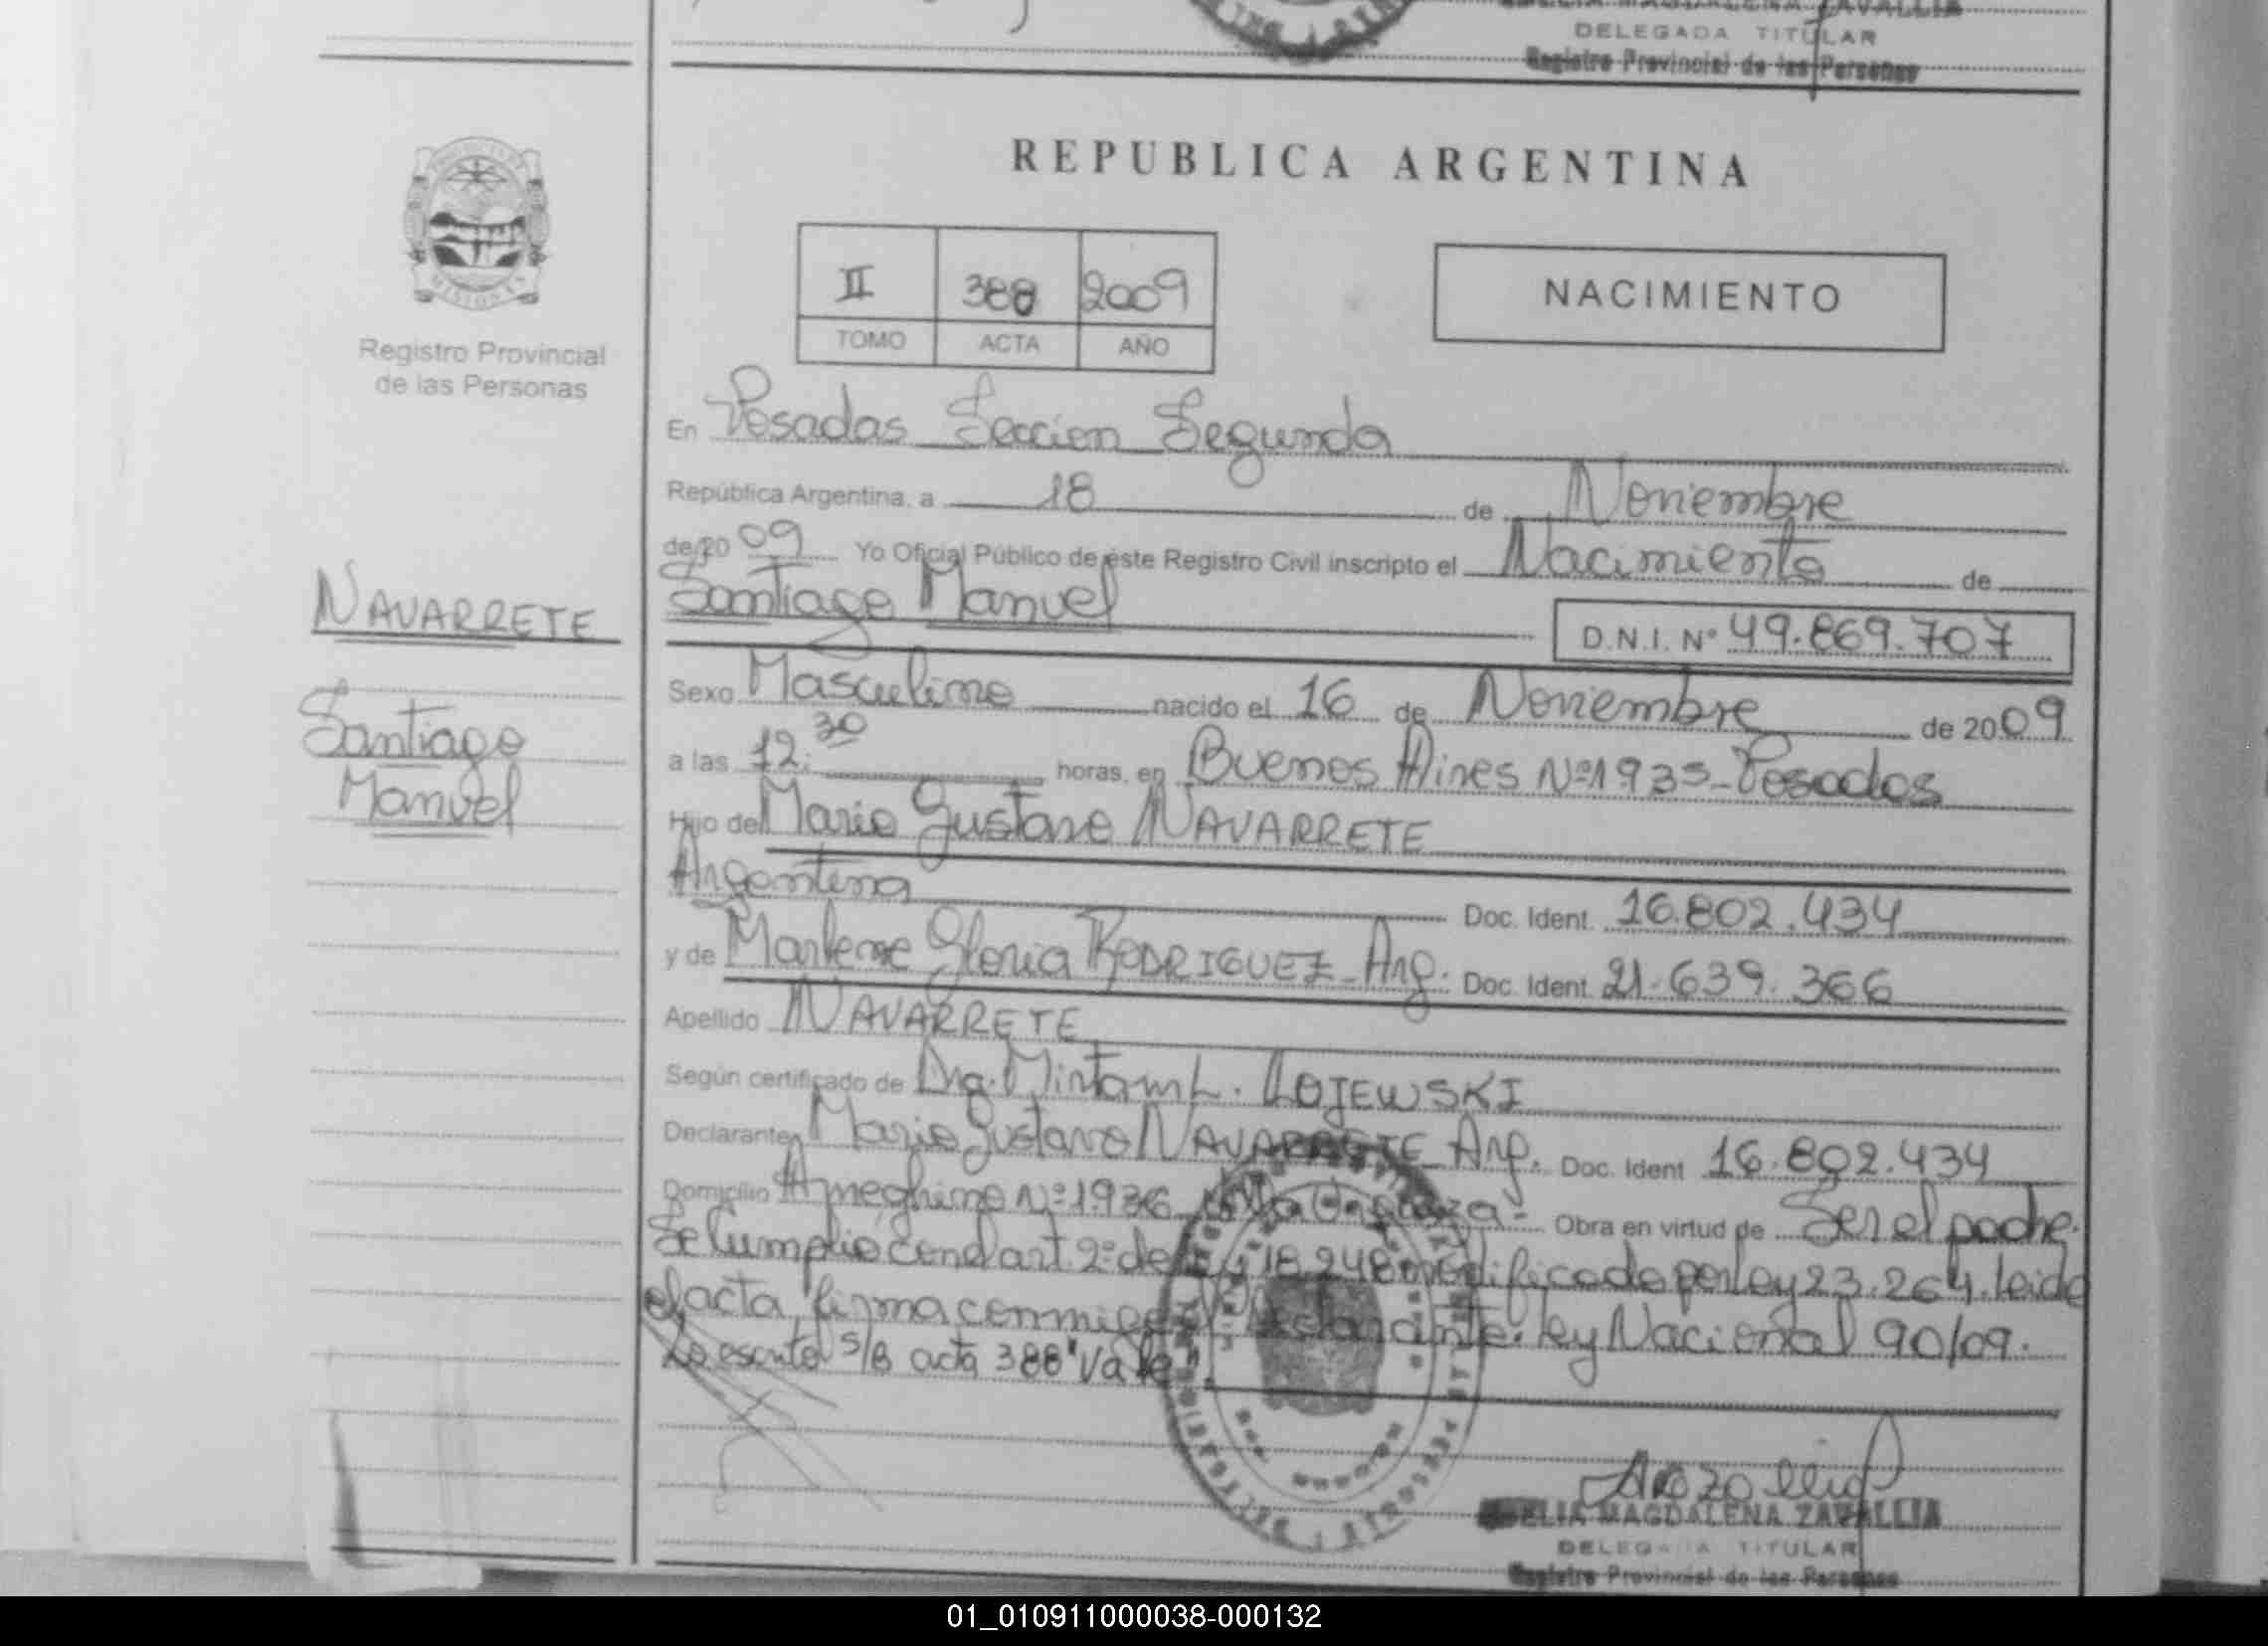 DELEGADA TITULAR
Registro Provincial de las Personas
REPUBLICA ARGENTINA
MISIONES
II 388 2009
TOMO ACTA AÑO
NACIMIENTO
Registro Provincial
de las Personas
En Posadas Seccion Segunda
República Argentina, a 18 de Noviembre
de 20 09 Yo Oficial Público de este Registro Civil inscripto el Nacimiento de
NAVARRETE
Santiago Manuel
D.N.I. Nº 49.869.707
Santiago
Manuel
Sexo Masculino nacido el 16 de Noviembre de 2009
a las 12:30 horas, en Buenos Aires Nº 1935-Posadas
Hijo de Mario Gustavo NAVARRETE
Argentina Doc. Ident. 16.802.434
y de Marlene Gloria RODRIGUEZ-Arg. Doc. Ident. 21.639.366
Apellido NAVARRETE
Según certificado de Dra. L. LOJEWSKI
Declarante Mario Gustavo NAVARRETE Arg. Doc. Ident 16.802.434
Domicilio Ameghino Nº 1936 Obra en virtud de Ser el padre.
Se Cumplio con el art. 2º de ley 18.248 modificado por ley 23.264. leida
el acta, firma conmigo el declarante. ley Nacional 90/09.
Lo escrito s/b acta 388 "vale".
ELIA MAGDALENA ZAVALLIA
DELEGADA TITULAR
Registro Provincial de las Personas
01_010911000038-000132